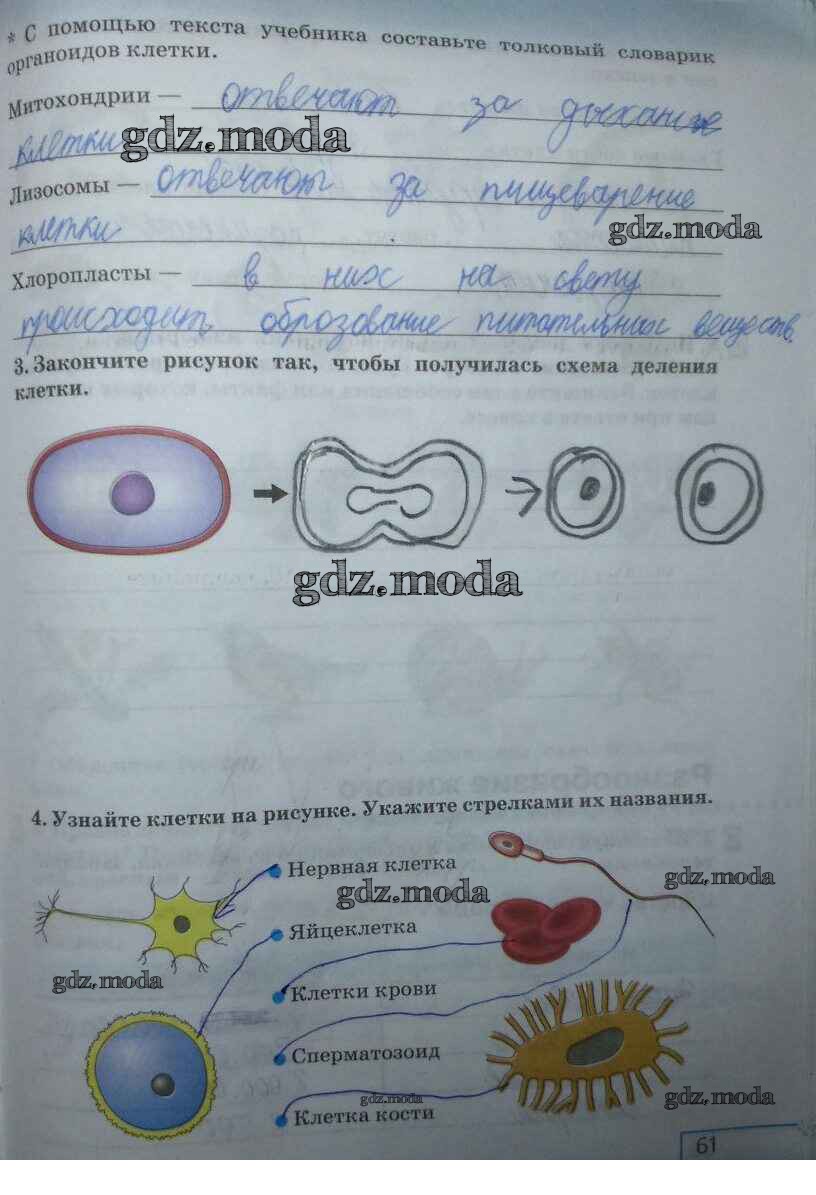 * С помощью текста учебника составьте толковый словарик
органоидов клетки.
Митохондрии — отвечают за дыхание
клетки gdz.moda
Лизосомы — отвечают за пищеварение
клетки gdz.moda
Хлоропласты — в них на свету
происходит образование питательных веществ.
3. Закончите рисунок так, чтобы получилась схема деления
клетки.
gdz.moda
4. Узнайте клетки на рисунке. Укажите стрелками их названия.
Нервная клетка
gdz.moda
gdz.moda
Яйцеклетка
gdz.moda
Клетки крови
Сперматозоид
gdz.moda
gdz.moda
Клетка кости
61